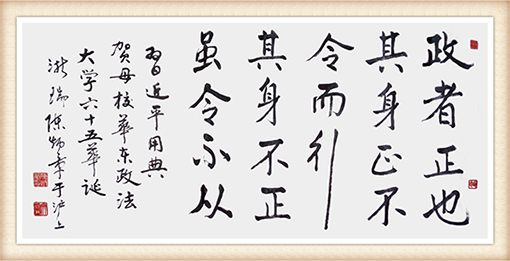 政者正也
其身正不
令而行
其身不正
虽令不从
習近平用典
贺母校華东政法
大学六十五華诞
浙瑞陈炳章于沪上